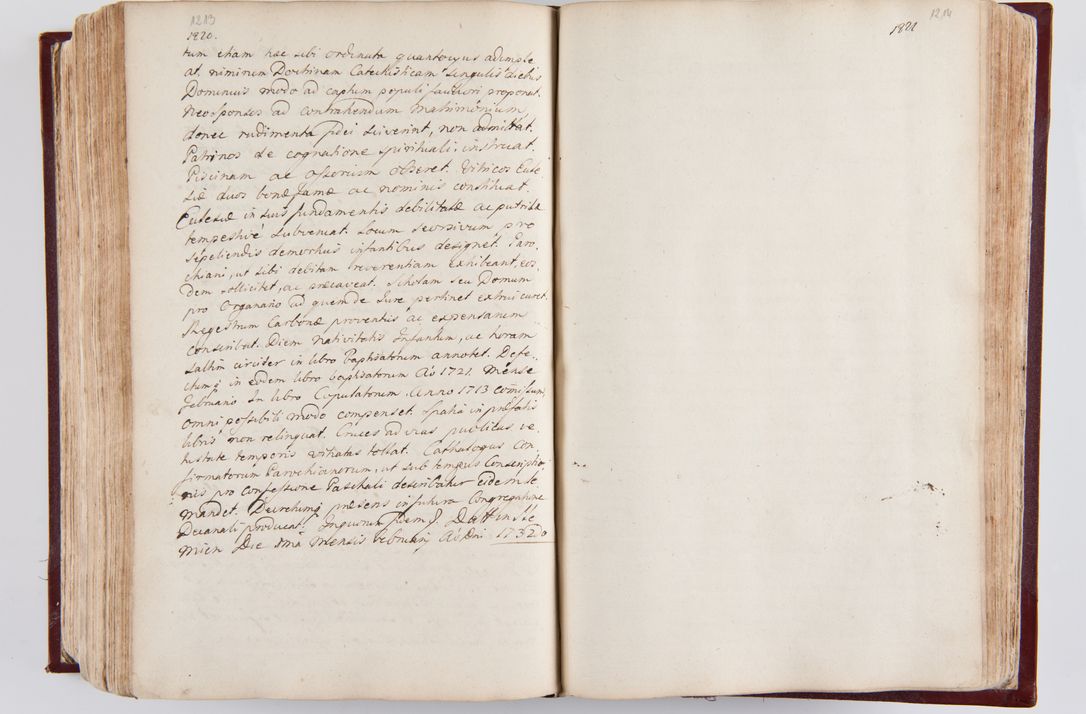 1213
1820.
tum etiam hac sibi ordinata quantocyus adimple
at, niminum Doctrinam Catechisticam singulis diebus
Dominicis modo ad captum populi faciliori proponat.
Neosponsos ad contrahendum matrimonium
donec rudimenta fidei sciverint, non admittat.
Patrinos de cognatione spirituali instruat.
Piscinam ac Ossorium obseret. Vitricos Eccle
siæ duos bonæ famæ ac nominis constituat.
Ecclesiæ in suis fundamentis debilitatæ ac putridæ
tempestivè subveniat. Locum seorsivum pro
sepeliendis demortuis infantibus designet. Paro
chiani, ut sibi debitam reverentiam exhibeant, eos
dem sollicitet, ac præcaveat. Scholam seu Domum
pro Organario ad quem de Jure pertinet extrui curet.
Regestrum Carbonæ proventus ac expensarum
conscribat. Diem nativitatis Infantium, ac horam
saltim circiter in libro baptisatorum annotet. Defe,
ctumq in eodem libro baptisatorum Ao 1721. Mense
Februario. In libro Copulatorum Anno 1713 comissum,
omni possibili modo compenset. Spatia in præfatis
libris non relinquat. Cruces ad vias publicas ve
tustate temporis vitiatas tollat. Cathalogus Con
firmatorum Parochianorum, ut sub tempus Conscriptio,
nis pro Confessione Paschali describatur eidem se
mandet. Decretumq præsens in futura Congregatione
Decanali producat. In quorum fidem &. Datt in Sie
mien Die 8ma Mensis Februarij Ao Dni 1732do
1214
1821